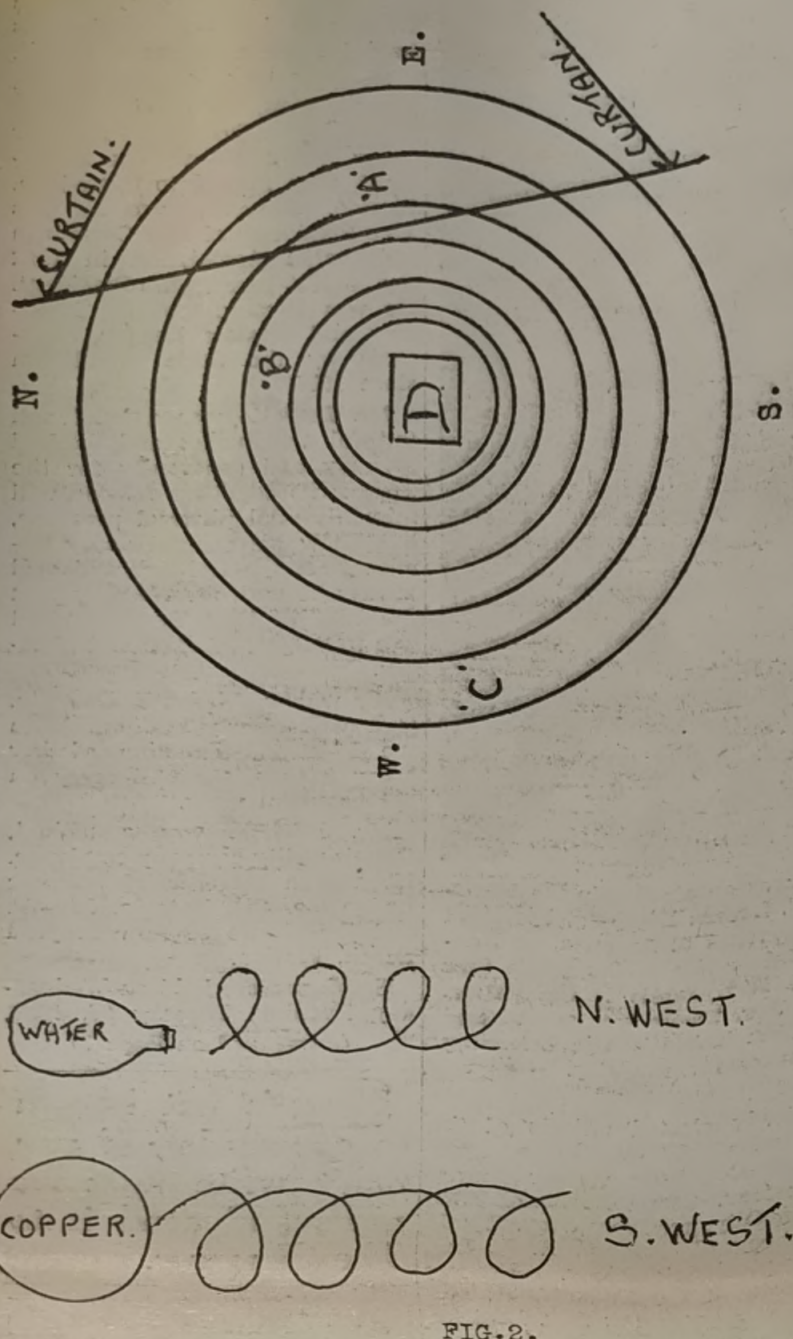 E.
CURTAIN.
CURTAIN.
'A'
N.
'B'
D
S.
'C'
W.
WATER
N. WEST.
COPPER.
S. WEST.
FIG.2.